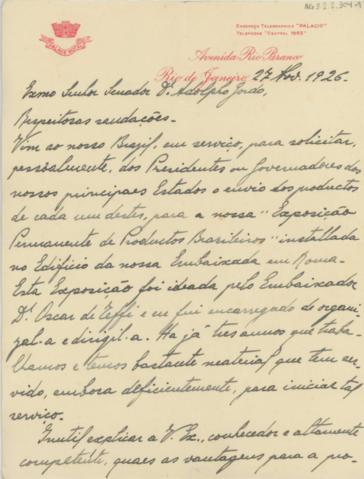 ENDEREÇO TELEGRAPHICO "PALACIO"
PALACE HOTEL
Avenida Rio Branco
Rio de Janeiro 27 Nov. 1926.
Exmo Senhor Senador Dr. Adolpho Gordo.
Respeitosas saudações.
Vim ao nosso Brazil, em serviço, para solicitar,
pessoalmente, dos Presidentes ou Governadores dos
nossos principaes Estados o envio dos productos
de cada um destes, para a nossa "Exposição
Permanente de Productos Brasileiros" installada
no Edificio da nossa Embaixada em Roma.
Esta Exposição foi ideada pelo Embaixador
Dr. Oscar de Teffé e eu fui encarregado de organi-
zal-a e dirigil-a. Ha já tres annos que traba-
lhamos e temos bastante material que tem ser-
vido, embora deficientemente, para iniciar tal
serviço.
Inutil explicar a V. Ex., conhecedor e altamente
competente, quaes as vantagens para a pro-